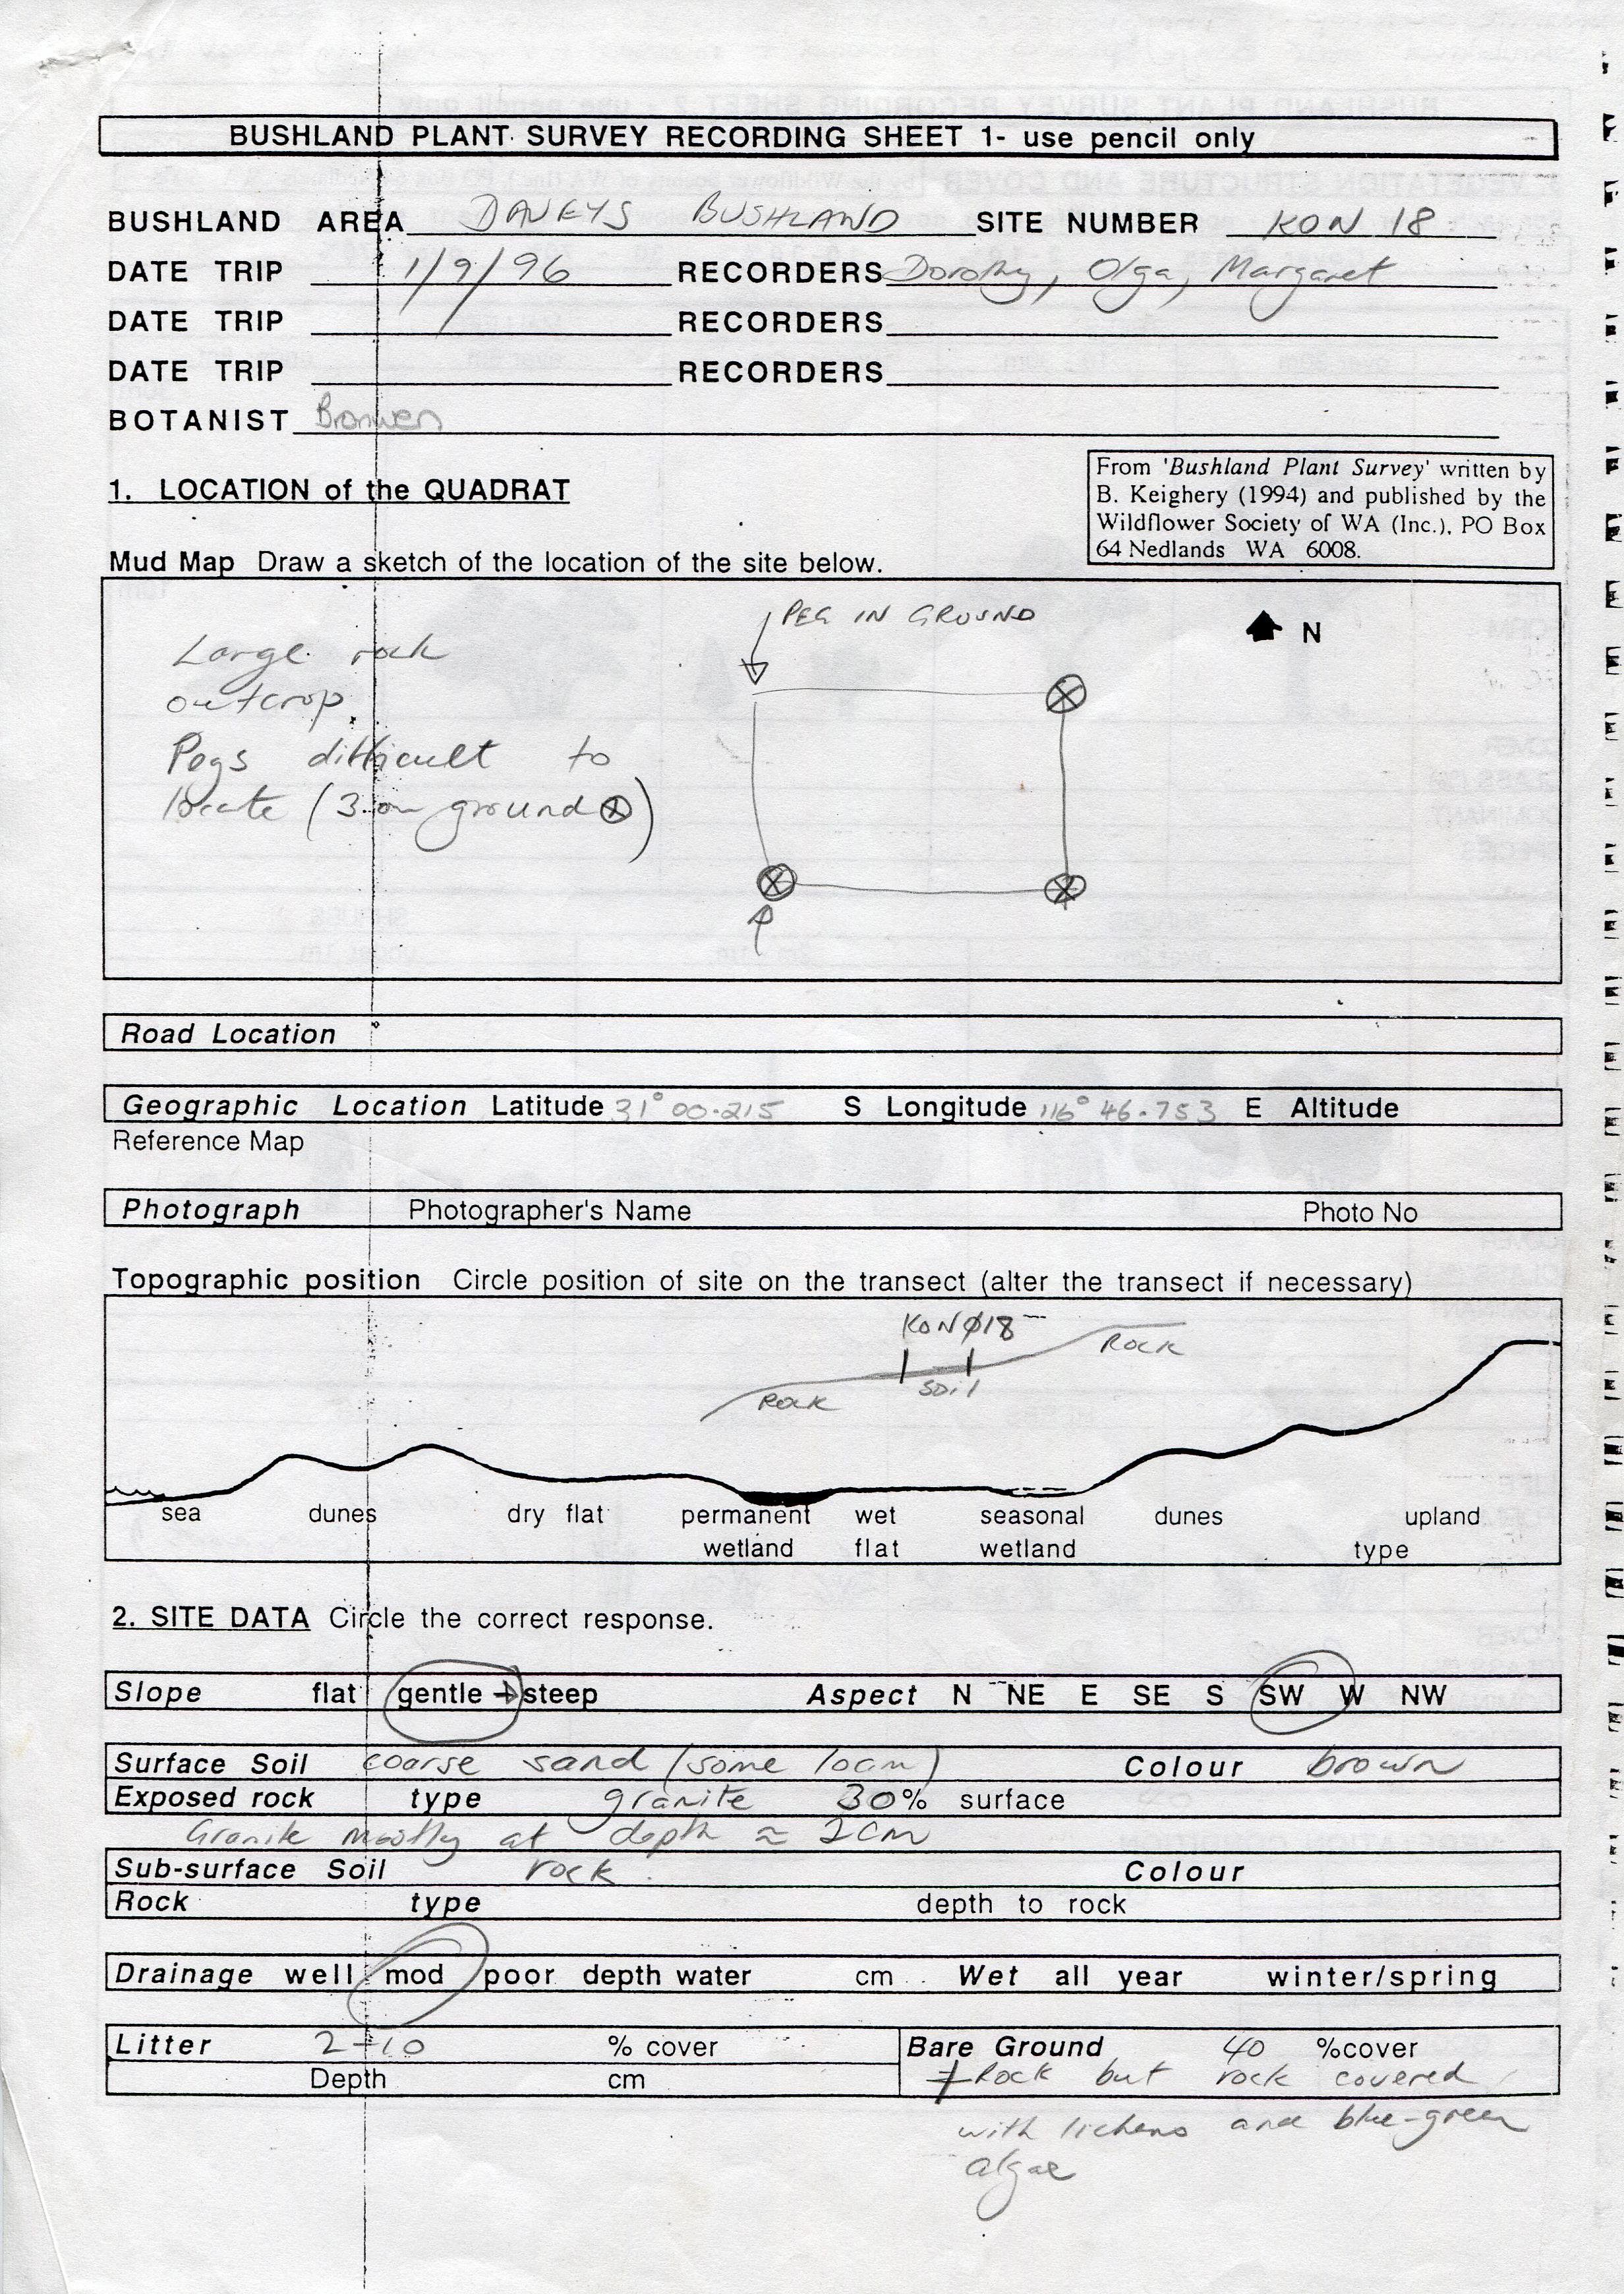 BUSHLAND PLANT SURVEY RECORDING SHEET 1- use pencil only
BUSHLAND AREA DAVEYS BUSHLAND SITE NUMBER KON 18
DATE TRIP 1/9/96 RECORDERS Dorothy, Olga, Margaret
DATE TRIP RECORDERS
DATE TRIP RECORDERS
BOTANIST Bronwen
1. LOCATION of the QUADRAT
From 'Bushland Plant Survey' written by
B. Keighery (1994) and published by the
Wildflower Society of WA (Inc.), PO Box
64 Nedlands WA 6008.
Mud Map Draw a sketch of the location of the site below.
PEG IN GROUND
N
Large rock
outcrop
Pegs difficult to
locate (3 on ground ⊗)
Road Location
Geographic Location Latitude 31° 00.215 S Longitude 116° 46.753 E Altitude
Reference Map
Photograph Photographer's Name Photo No
Topographic position Circle position of site on the transect (alter the transect if necessary)
KONØ18
ROCK
SOIL
ROCK
sea dunes dry flat permanent wet seasonal dunes upland
wetland flat wetland type
2. SITE DATA Circle the correct response.
Slope flat gentle → steep Aspect N NE E SE S SW W NW
Surface Soil coarse sand (some loam) Colour brown
Exposed rock type granite 30% surface
Granite mostly at depth ≈ 2cm
Sub-surface Soil rock. Colour
Rock type depth to rock
Drainage well mod poor depth water cm Wet all year winter/spring
Litter 2-10 % cover Bare Ground 40 %cover
Depth cm ≠ Rock but rock covered
with lichens and blue-green
algae